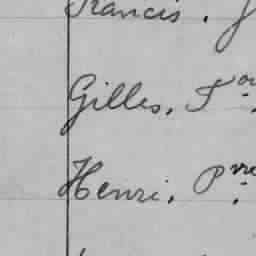 Francis.
Gilles.
Henri. Pre